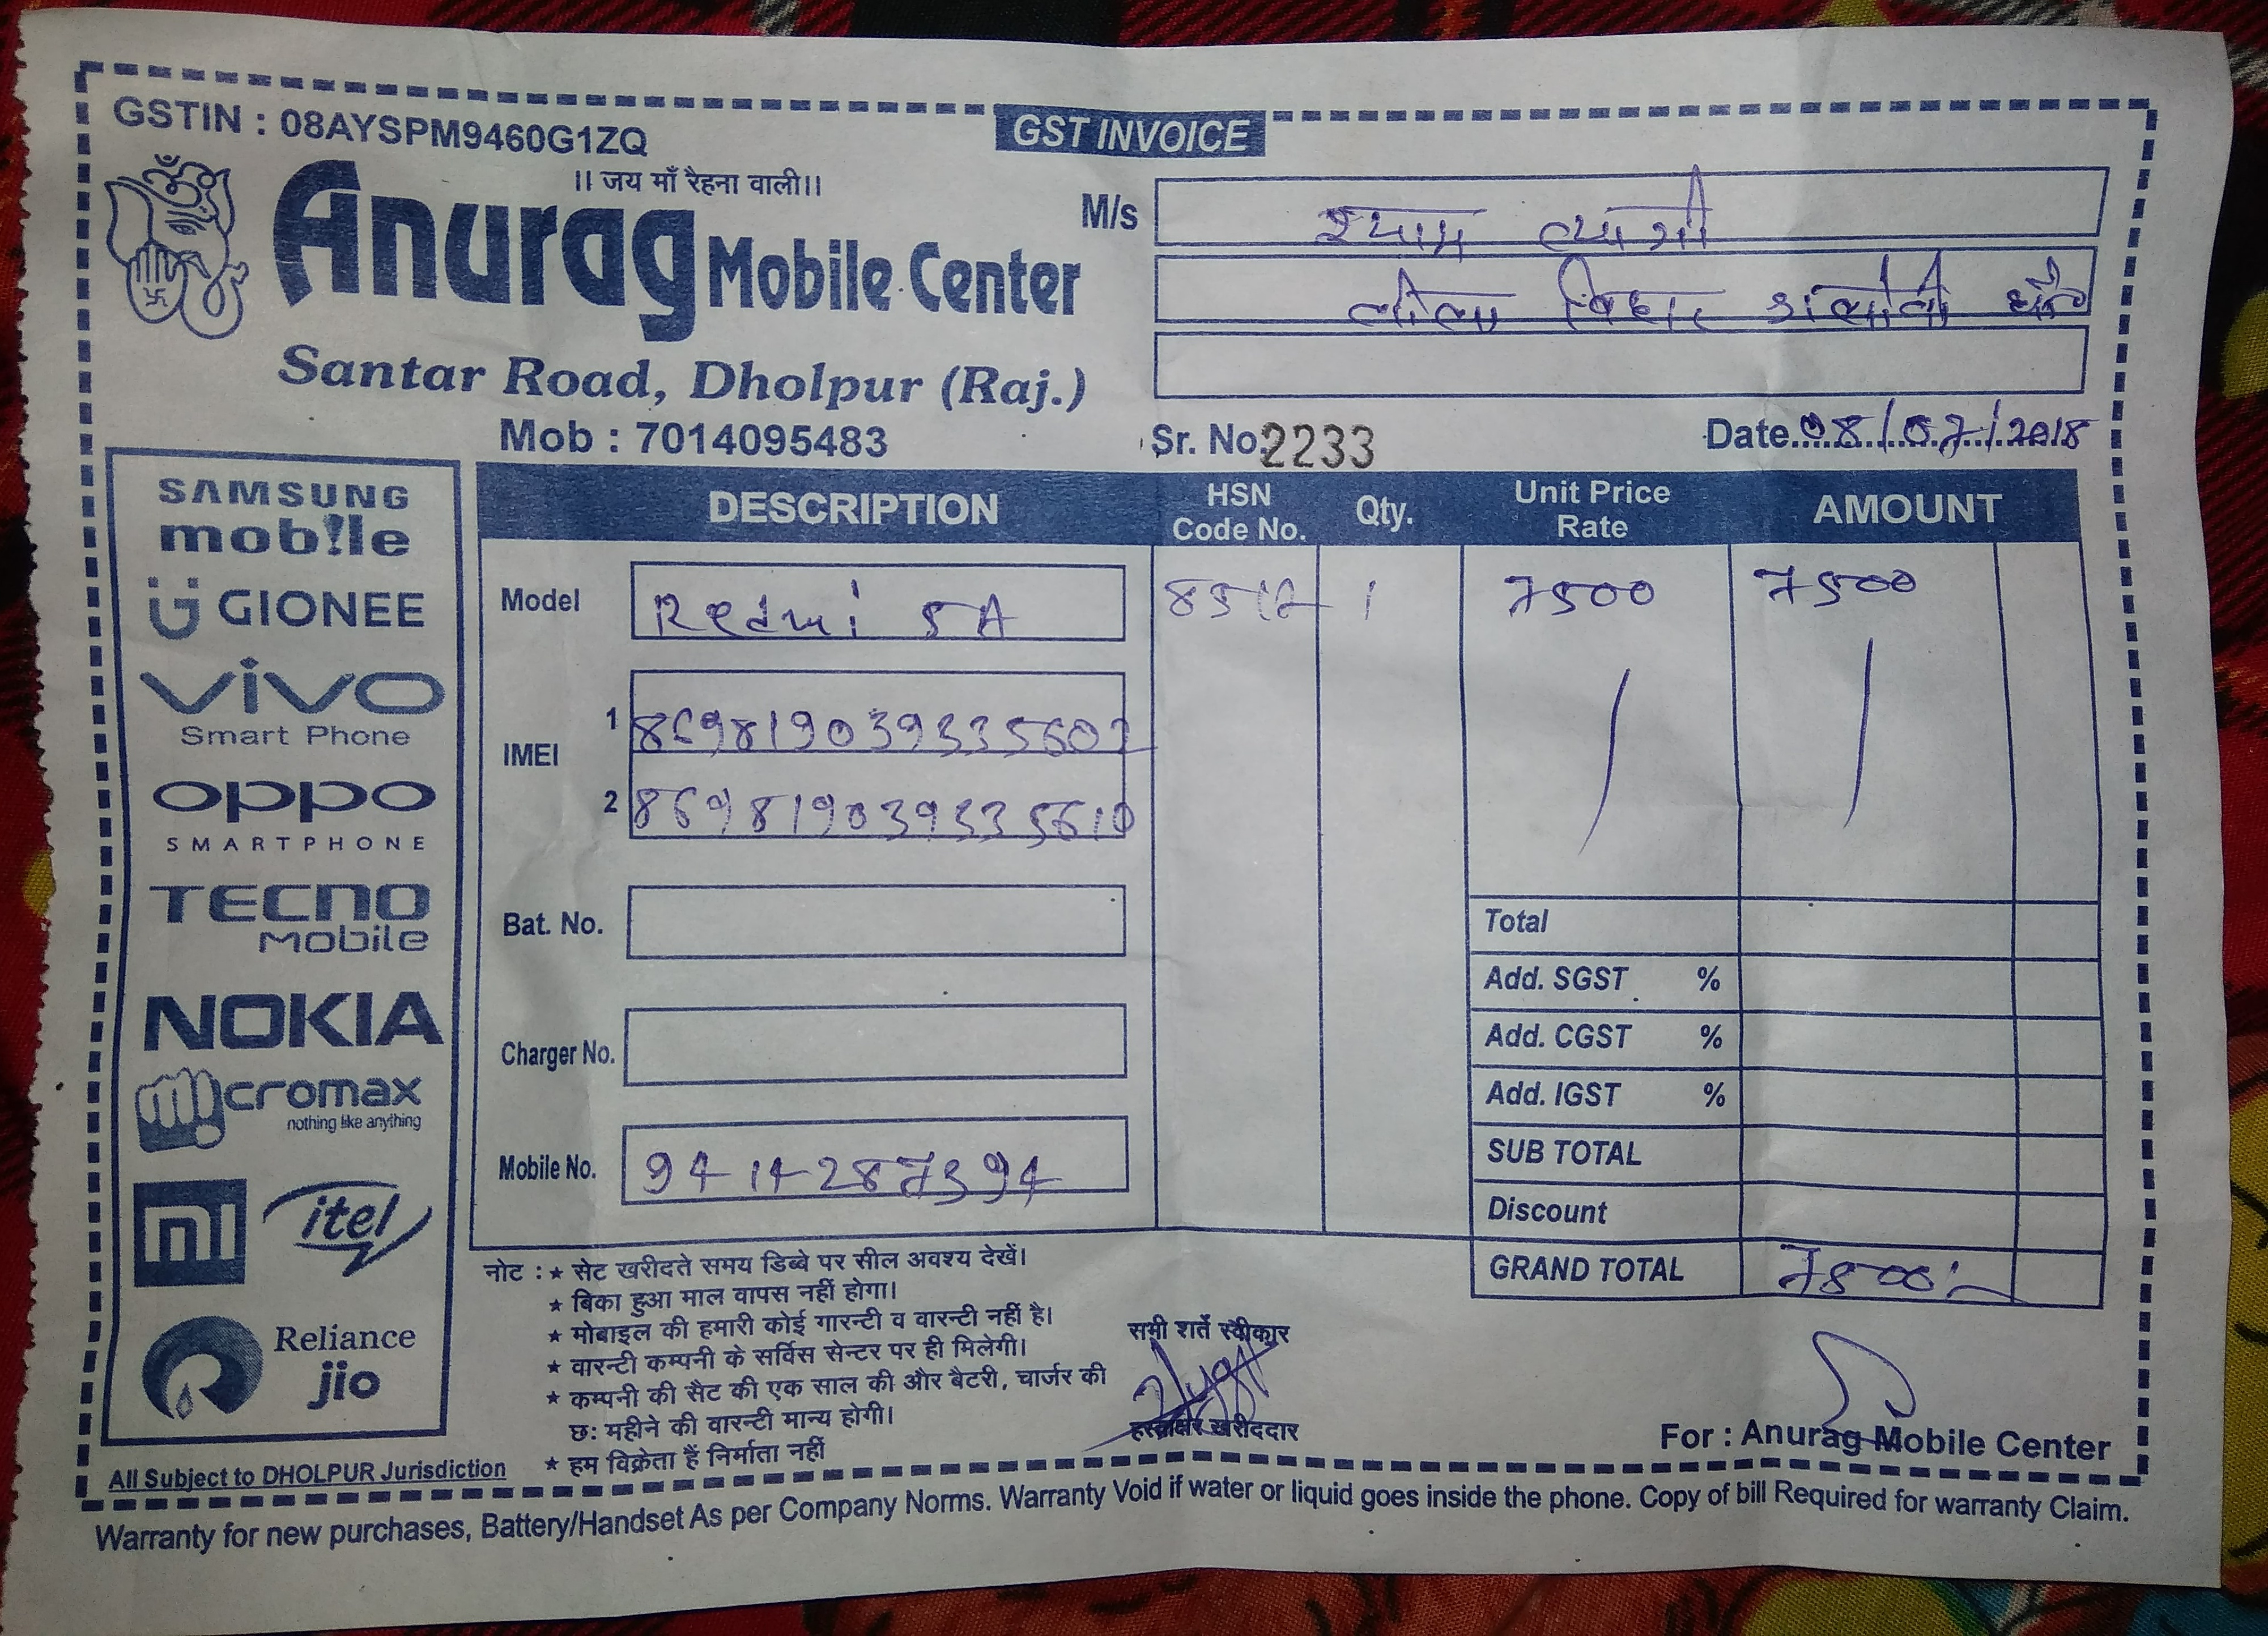 GSTIN : 08AYSPM9460G1ZQ
GST INVOICE
।। जय माँ रैहना वाली।।
Anurag Mobile Center
Santar Road, Dholpur (Raj.)
Mob : 7014095483
M/s श्याम त्यागी
लीला विहार
Sr. No. 2233
Date 08/07/2018
SAMSUNG
mobile
GIONEE
vivo
Smart Phone
oppo
SMARTPHONE
TECNO
Mobile
NOKIA
micromax
nothing like anything
mi
itel
Reliance
jio
DESCRIPTION HSN Code No. Qty. Unit Price Rate AMOUNT
Model Redmi 5A 1 7500 7500
IMEI
1 869819039335602
2 869819039335610
Bat. No.
Charger No.
Mobile No. 9414287394
Total
Add. SGST %
Add. CGST %
Add. IGST %
SUB TOTAL
Discount
GRAND TOTAL 7500
नोट : ★ सेट खरीदते समय डिब्बे पर सील अवश्य देखें।
★ बिका हुआ माल वापस नहीं होगा।
★ मोबाइल की हमारी कोई गारन्टी व वारन्टी नहीं है।
★ वारन्टी कम्पनी के सर्विस सेन्टर पर ही मिलेगी।
★ कम्पनी की सैट की एक साल की और बैटरी, चार्जर की
छः महीने की वारन्टी मान्य होगी।
★ हम विक्रेता हैं निर्माता नहीं
सभी शर्ते स्वीकार
हस्ताक्षर खरीददार
For : Anurag Mobile Center
All Subject to DHOLPUR Jurisdiction
Warranty for new purchases, Battery/Handset As per Company Norms. Warranty Void if water or liquid goes inside the phone. Copy of bill Required for warranty Claim.